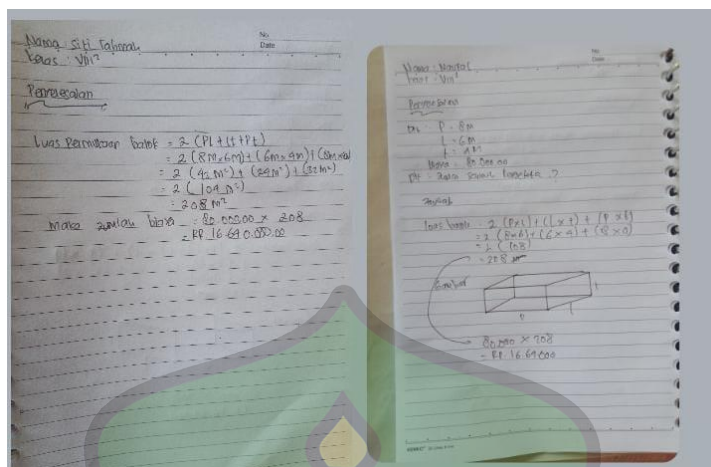 No
Date
Nama : Siti Fatimah
Kelas : VIII²
Penyelesaian
Luas Permukaan balok = 2 (Pl + lt + Pt)
= 2 (8m×6m) + (6m×4m) + (8m×4m)
= 2 (42 m²) + (24 m²) + (32 m²)
= 2 (104 m²)
= 208 m²
Maka jumlah biaya = 80.000.00 × 208
= RP. 16.640.000.00
No
Date
Nama :
Kelas : VIII²
Dik : P = 8m
L = 6m
t = 4m
= 80.000.00
Dit =
Jawab
Luas balok = 2 (P×L) + (L×t) + (P×t)
= 2 (8×6) + (6×4) + (8×
= 2 (
= 208
t
80.000 × 208
= RP. 16.64000